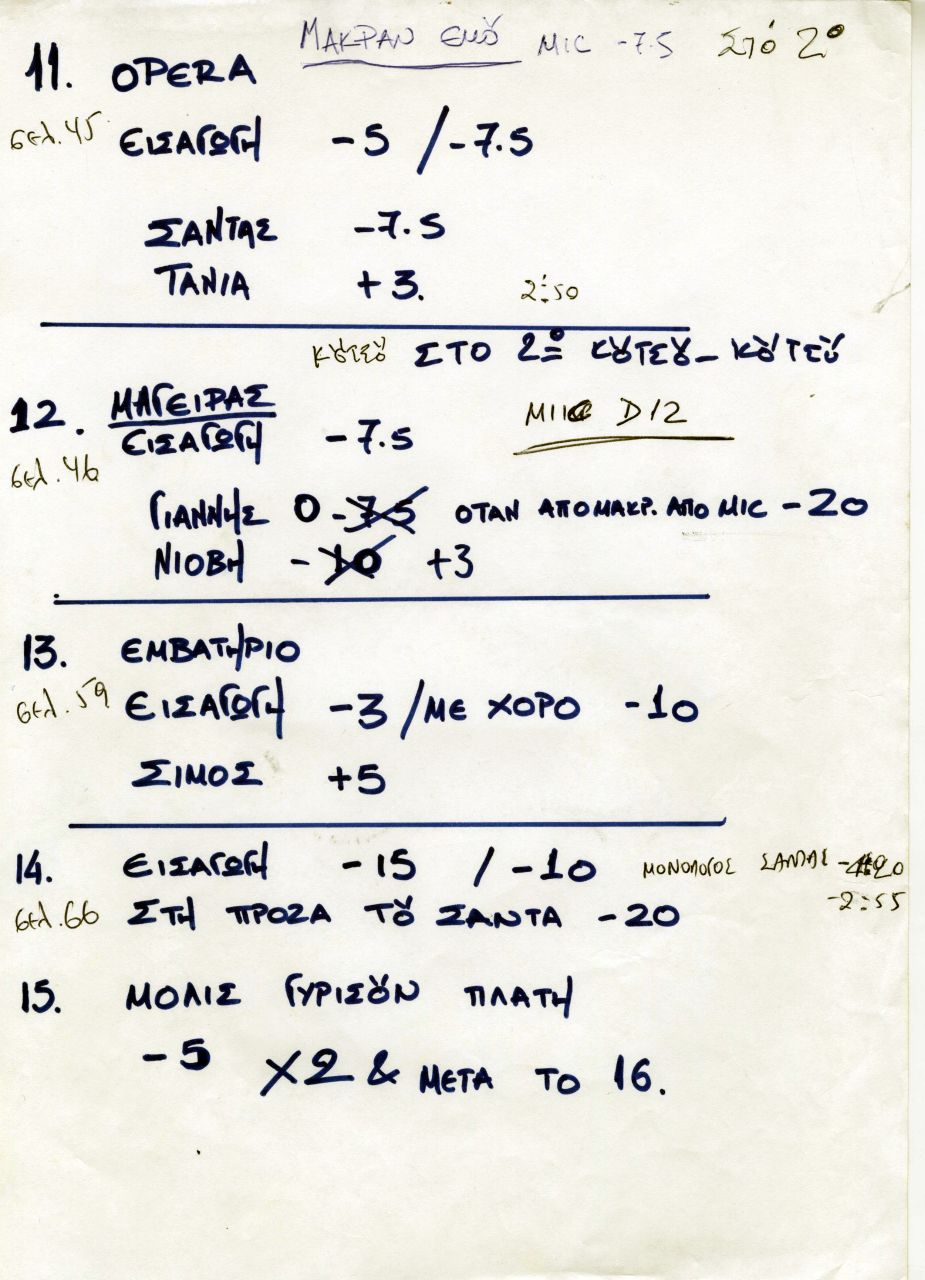 ΜΑΚΡΑΝ ΕΜΟΥ MIC -7.5 ΣΤΟ 2º
11. OPERA
σελ. 45 ΕΙΣΑΓΩΓΗ -5 / -7.5
ΣΑΝΤΑΣ -7.5
ΤΑΝΙΑ +3. 2:50
ΚΟΥΤΣΟΥ ΣΤΟ 2º ΚΟΥΤΣΟΥ - ΚΟΥΤΣΟΥ
12. ΜΑΓΕΙΡΑΣ MIC D12
ΕΙΣΑΓΩΓΗ -7.5
σελ. 46
ΓΙΑΝΝΗΣ 0 -7.5 ΟΤΑΝ ΑΠΟΜΑΚΡ. ΑΠΟ MIC -20
ΝΙΟΒΗ -10 +3
13. ΕΜΒΑΤΗΡΙΟ
σελ. 59 ΕΙΣΑΓΩΓΗ -3 / ΜΕ ΧΟΡΟ -10
ΣΙΜΟΣ +5
14. ΕΙΣΑΓΩΓΗ -15 / -10 ΜΟΝΟΛΟΓΟΣ ΣΑΝΤΑΣ -20
-2:55
σελ. 66 ΣΤΗ ΠΡΟΖΑ ΤΟΥ ΣΑΝΤΑ -20
15. ΜΟΛΙΣ ΓΥΡΙΣΟΥΝ ΠΛΑΤΗ
-5 Χ2 & ΜΕΤΑ ΤΟ 16.